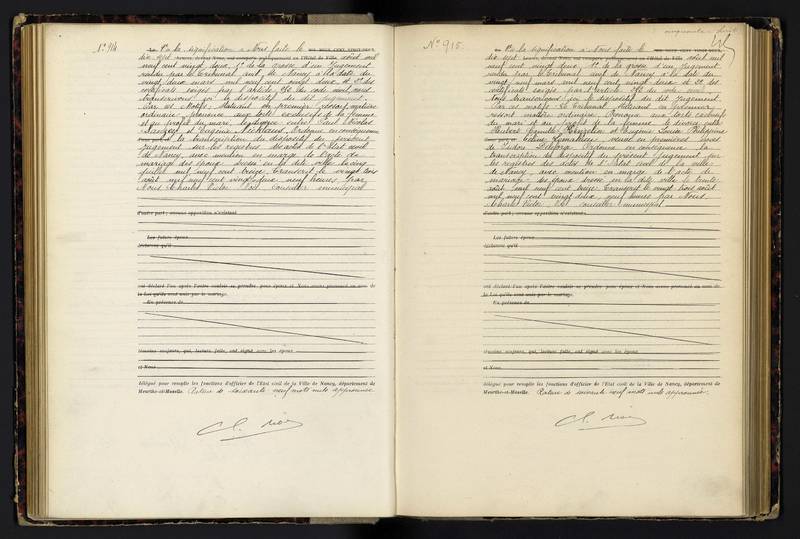 N° 914
Vu la signification à Nous faite le
dix sept août mil
neuf cent vingt deux, 1° de la Grosse d'un Jugement
rendu par le Tribunal civil de Nancy à la date du
vingt deux mars mil neuf cent vingt deux et 2° des
certificats exigés par l'article 548 du code civil, nous
transcrivons ici le dispositif du dit jugement.
Par ces motifs, statuant en premier ressort, matière
ordinaire, prononce aux torts exclusifs de la femme
et au profit du mari, le divorce entre Paul Nicolas
et Eugénie. Ordonne en conséquence
la transcription du dispositif du présent
jugement sur les registres des actes de l'Etat civil
de Nancy, avec mention en marge de l'acte de
mariage des époux dressé en la dite ville le cinq
juillet mil neuf cent treize. Transcrit le vingt trois
août mil neuf cent vingt deux, neuf heures, par
Nous Charles Victor conseiller municipal
d'autre part; aucune opposition n'existant
Les futurs époux
déclarent qu'il
ont déclaré l'un après l'autre vouloir se prendre pour époux et Nous avons prononcé au nom de
la Loi qu'ils sont unis par le mariage.
En présence de
témoins majeurs, qui, lecture faite, ont signé avec les époux
et Nous
délégué pour remplir les fonctions d'officier de l'Etat civil de la Ville de Nancy, département de
Meurthe-et-Moselle. Rature de soixante neuf mots nuls approuvée
N° 915.
Vu la signification à Nous faite le
dix sept août mil
neuf cent vingt deux, 1° de la grosse d'un Jugement
rendu par le Tribunal civil de Nancy à la date du
vingt neuf mars mil neuf cent vingt deux et 2° des
certificats exigés par l'article 548 du code civil
Nous transcrivons ici le dispositif du dit Jugement.
Par ces motifs Le Tribunal statuant en premier
ressort matière ordinaire Prononce aux torts exclusifs
du mari et au profit de la femme le divorce entre
Camille et Eugénie Louise Philippine
veuve en premières noces
de Isidore Ordonne en conséquence la
transcription du dispositif du présent Jugement sur
les registres des actes de l'Etat civil de la ville
de Nancy avec mention en marge de l'acte de
mariage des époux dressé en la dite ville le trente
août mil neuf cent treize. Transcrit le vingt trois août
mil neuf cent vingt deux, neuf heures par Nous,
Charles Victor conseiller municipal
d'autre part; aucune opposition n'existant.
Les futurs époux
déclarent qu'il
ont déclaré l'un après l'autre vouloir se prendre pour époux et Nous avons prononcé au nom de
la Loi qu'ils sont unis par le mariage.
En présence de
témoins majeurs, qui, lecture faite, ont signé avec les époux
et Nous
délégué pour remplir les fonctions d'officier de l'Etat civil de la Ville de Nancy, département de
Meurthe-et-Moselle. Rature de soixante neuf mots nuls approuvée.